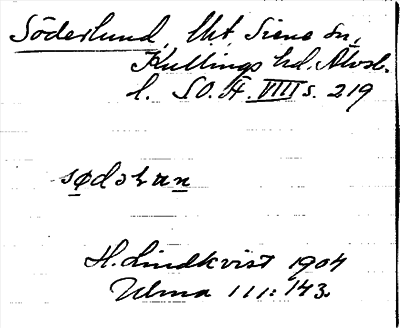 Söderlund, Utt Siene sn,
Kullings hd. Älvsb.
l. SO. Ä. VIII s. 219
H. Lindkvist 1904
Ulma 111:143.